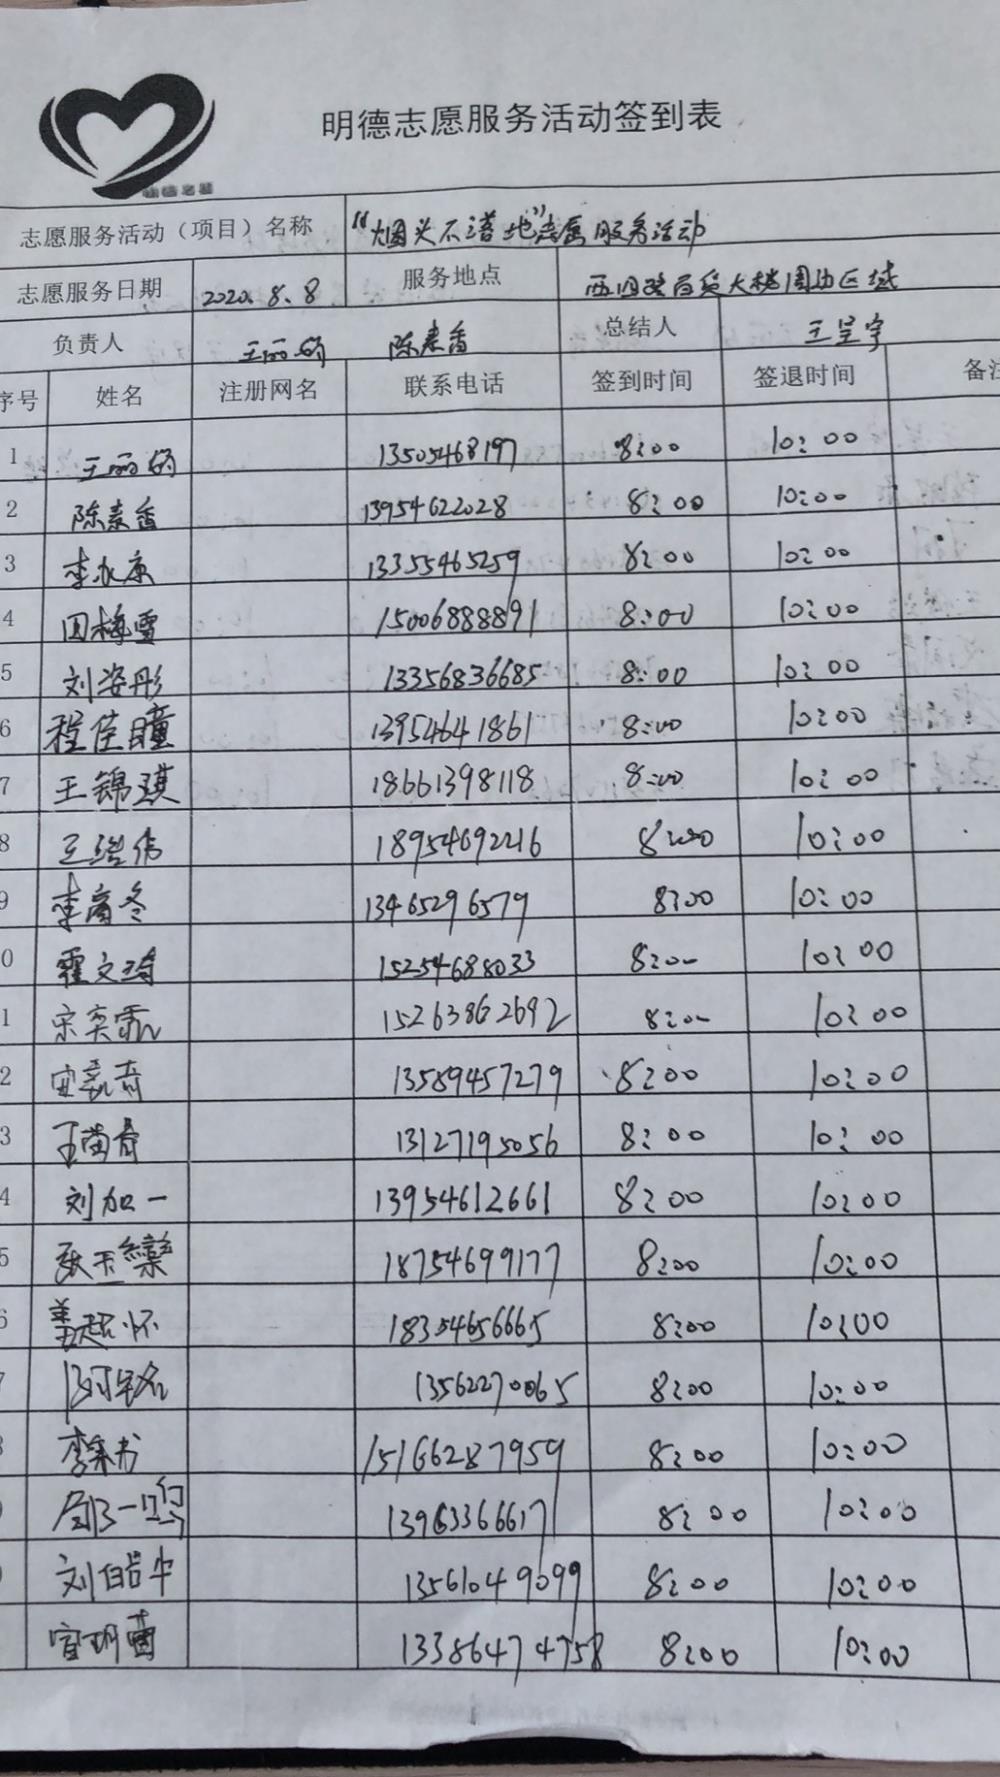 明德志愿
明德志愿服务活动签到表
志愿服务活动（项目）名称 "烟头不落地"志愿服务活动
志愿服务日期 2020.8.8 服务地点 西四路商贸大楼周边区域
负责人 王丽娇 陈素香 总结人 王呈宇
序号 姓名 注册网名 联系电话 签到时间 签退时间 备注
1 王丽娇 13505468197 8:00 10:00
2 陈素香 13954622028 8:00 10:00
3 李永康 13355465259 8:00 10:00
4 田梅雪 15006888891 8:00 10:00
5 刘姿彤 13356836685 8:00 10:00
6 程佳瞳 13954641861 8:00 10:00
7 王锦琪 18661398118 8:00 10:00
8 18954692216 8:00 10:00
9 李富冬 13465296579 8:00 10:00
0 霍文琦 15254688033 8:00 10:00
1 宋奕霏 15263862692 8:00 10:00
2 13589457279 8:00 10:00
3 王苗春 13127195056 8:00 10:00
4 刘加一 13954612661 8:00 10:00
5 张玉 18754699177 8:00 10:00
6 18354656665 8:00 10:00
7 13562270065 8:00 10:00
8 15166287959 8:00 10:00
13963366617 8:00 10:00
13561049099 8:00 10:00
13386474758 8:00 10:00